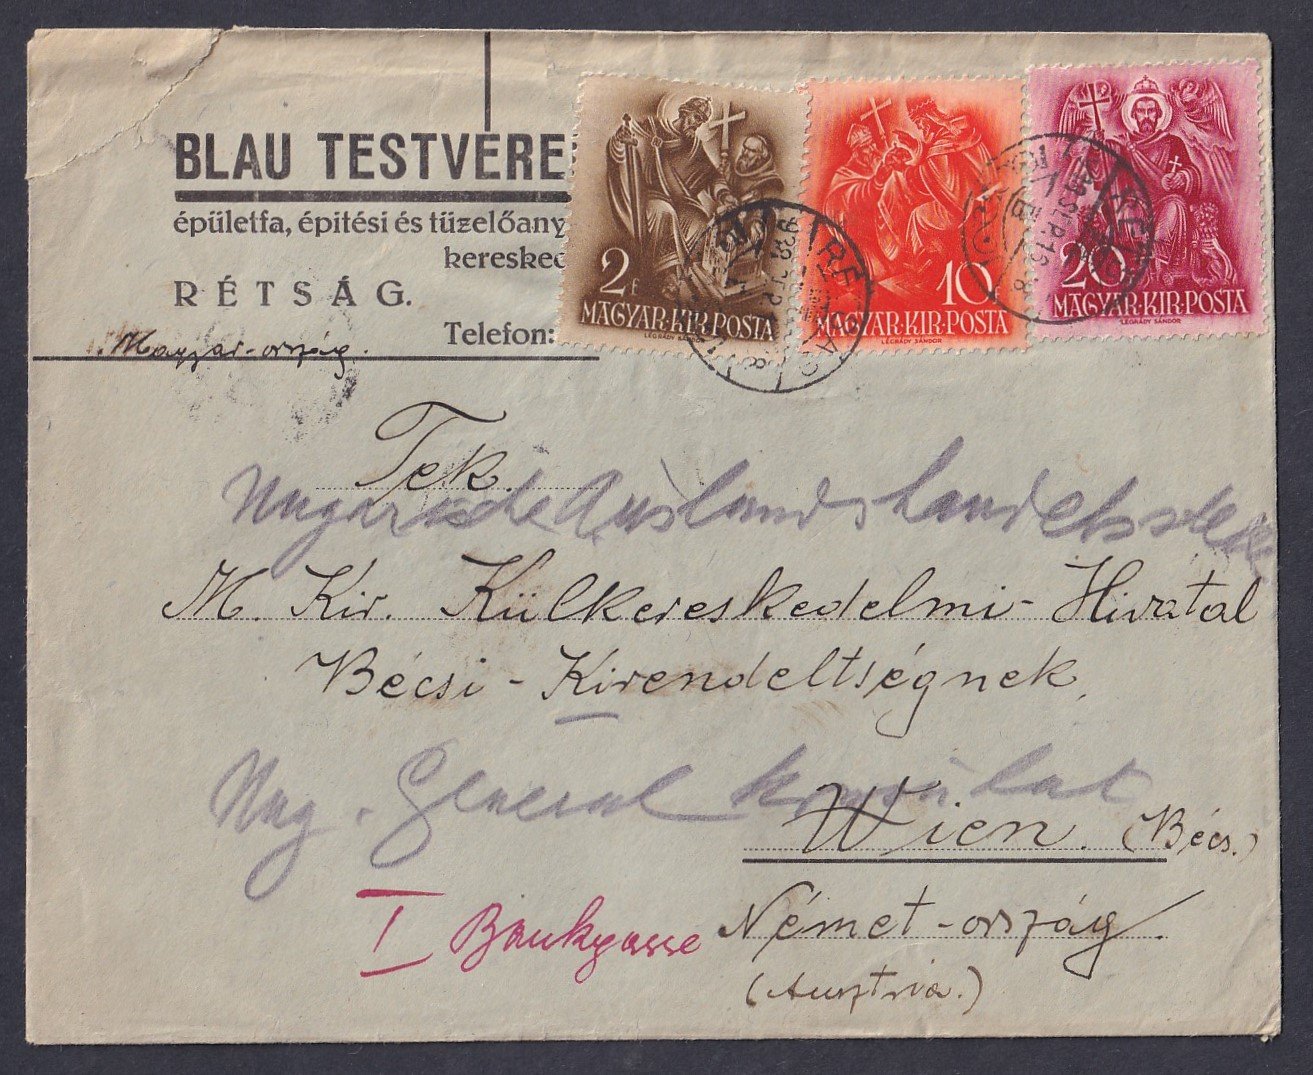 BLAU TESTVÉRE
épületfa, épitési és tüzelőany
kereskec
RÉTSÁG.
Telefon:
Magyar-ország.
2 f
MAGYAR·KIR·POSTA
LÉGRÁDY SÁNDOR
10
MAGYAR·KIR·POSTA
LÉGRÁDY SÁNDOR
20
MAGYAR·KIR·POSTA
LÉGRÁDY SÁNDOR
RÉTSÁG
Tek.
Ungarische Auslandshandels
M. Kir. Külkereskedelmi-Hivatal
Bécsi-Kirendeltségnek,
Ung. General konsulat
Wien. (Bécs.)
I Bankgasse
Német-ország.
(Ausztria.)